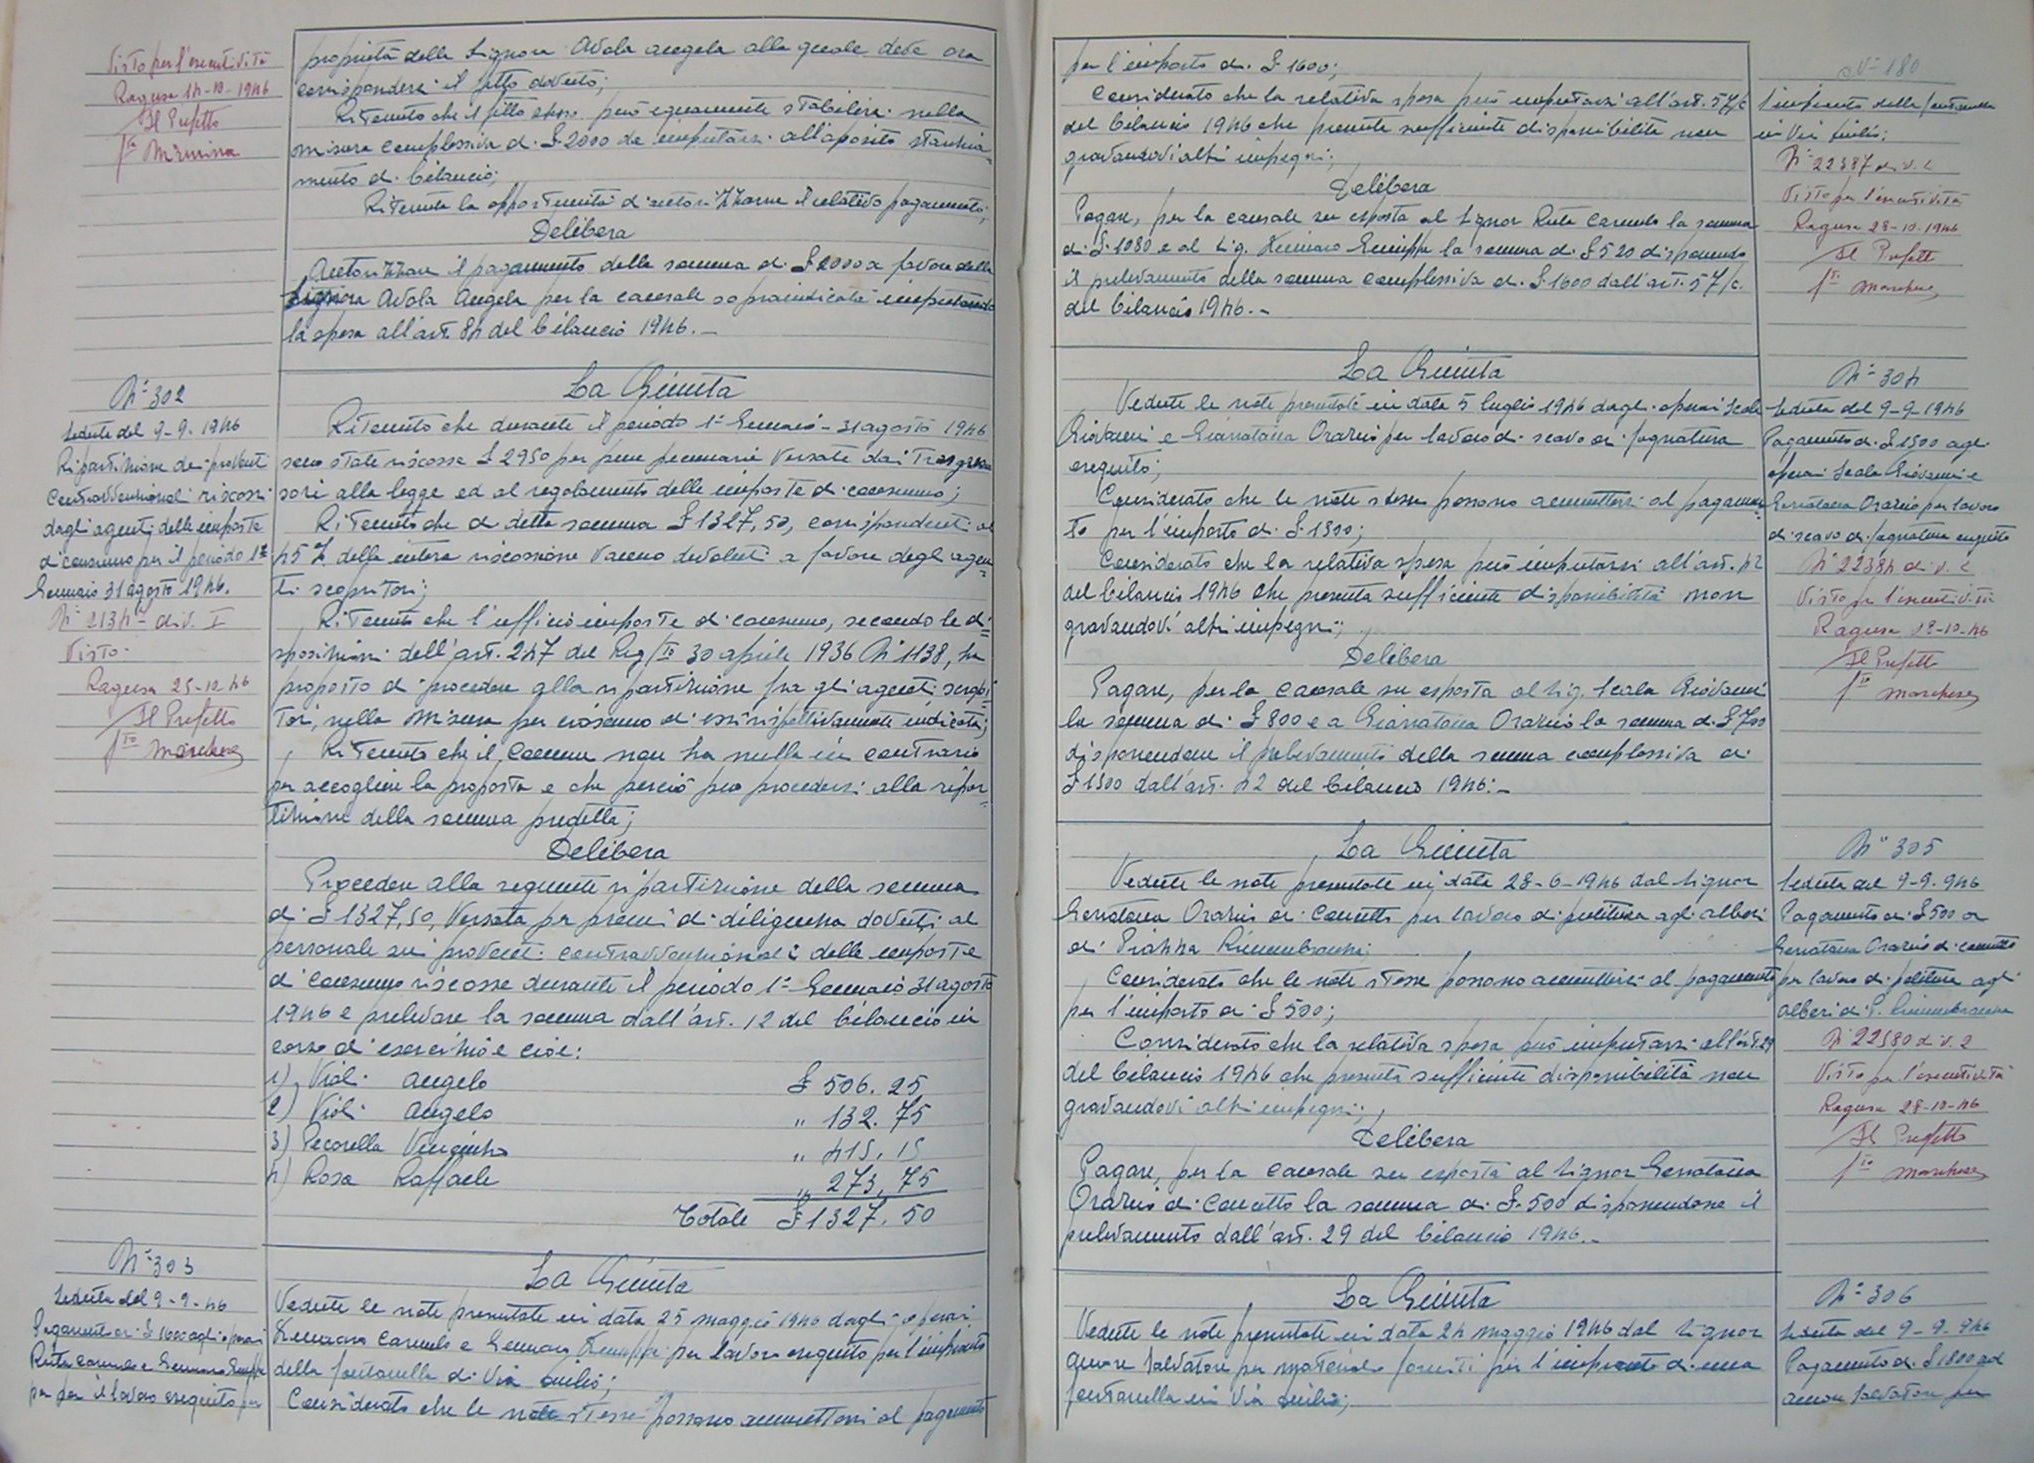 Visto per l'esecutività
Ragusa 14-10-1946
Il Prefetto
fto
proprietà della Signora Avola Angela alla quale deve ora
corrispondersi il fitto dovuto;
Ritenuto che il fitto stesso può equamente stabilirsi nella
misura complessiva di £ 2000 da imputarsi all'apposito stanzia-
mento di bilancio;
Ritenuta la opportunità d'autorizzarne il relativo pagamento;
Delibera
Autorizzare il pagamento della somma di £ 2000 a favore della
Signora Avola Angela per la causale sopraindicata imputando
la spesa all'art. 84 del bilancio 1946.-
N° 302
Seduta del 9-9-1946
Ripartizione dei proventi
contravvenzionali riscossi
dagli agenti delle imposte
di consumo per il periodo 1°
Gennaio 31 agosto 1946.
N° 2134 div. I
Visto.
Ragusa 25-12 46
Il Prefetto
fto Marchese
La Giunta
Ritenuto che durante il periodo 1° Gennaio - 31 agosto 1946
sono state riscosse £ 2950 per pene pecuniarie versate dai trasgres
sori alla legge ed al regolamento delle imposte di consumo;
Ritenuto che di detta somma £ 1327,50, corrispondenti al
45% della intera riscossione vanno devoluti a favore degli agen=
ti scopritori;
Ritenuto che l'ufficio imposte di consumo, secondo le di=
sposizioni dell'art. 247 del Reg/to 30 aprile 1936 N° 1138, ha
proposto di procedere alla ripartizione fra gli agenti scopri
tori, nella misura per ciascuno di essi rispettivamente indicata;
Ritenuto che il Comune non ha nulla in contrario
per accogliere la proposta e che perciò può procedersi alla ripar=
tizione della somma predetta;
Delibera
Procedere alla seguente ripartizione della somma
di £ 1327,50, versata per premi di diligenza dovuti al
personale sui proventi contravvenzionali delle imposte
di consumo riscosse durante il periodo 1° Gennaio 31 agosto
1946 e prelevare la somma dall'art. 12 del bilancio in
corso di esercizio e cioè:
1) Violi Angelo £ 506.25
2) Violi Angelo " 132.75
3) Pecorella Vincenzo " 415.15
4) Rosa Raffaele " 273.75
Totale £ 1327.50
N° 303
Seduta del 9-9-46
Pagamento di £ 1600 agli operai
Ruta Carmelo e Gennaro Giuseppe
per il lavoro eseguito per
La Giunta
Vedute le note presentate in data 25 maggio 1946 dagli operai
Carmelo e Gennaro Giuseppe per lavoro eseguito per l'impianto
della fontanella di Via Giulio;
Considerato che le note stesse possono ammettersi al pagamento
N° 180
l'impianto della fontanella
in Via Giulio;
N° 22387 div. 2
Visto per l'esecutività
Ragusa 28-10-1946
Il Prefetto
fto Marchese
per l'importo di £ 1600;
Considerato che la relativa spesa può imputarsi all'art. 57/c
del bilancio 1946 che presenta sufficiente disponibilità non
gravandovi altri impegni;
Delibera
Pagare, per la causale su esposta al Signor Ruta Carmelo la somma
di £ 1080 e al Sig. Gennaro Giuseppe la somma di £ 520 disponendo
il prelevamento della somma complessiva di £ 1600 dall'art. 57/c.
del bilancio 1946.-
N° 304
Seduta del 9-9-1946
Pagamento di £ 1500 agli
operai Scala Giovanni e
Orazio per lavoro
di scavo di fognatura eseguito
N° 22384 div. 2
Visto per l'esecutività
Ragusa 28-10-46
Il Prefetto
fto Marchese
La Giunta
Vedute le note presentate in data 5 luglio 1946 dagli operai Scala
Giovanni e Giannatana Orazio per lavoro di scavo di fognatura
eseguito;
Considerato che le note stesse possono ammettersi al pagamen
to per l'importo di £ 1500;
Considerato che la relativa spesa può imputarsi all'art. 42
del bilancio 1946 che presenta sufficiente disponibilità non
gravandovi altri impegni;
Delibera
Pagare, per la causale su esposta al Sig. Scala Giovanni
la somma di £ 800 e a Giannatana Orazio la somma di £ 700
disponendone il prelevamento della somma complessiva di
£ 1500 dall'art. 42 del bilancio 1946.-
N° 305
Seduta del 9-9-946
Pagamento di £ 500 a
Orazio di Concetto
per lavoro di politura agli
alberi di P. Rimembranza
N° 22380 div. 2
Visto per l'esecutività
Ragusa 28-10-46
Il Prefetto
fto Marchese
La Giunta
Vedute le note presentate in data 28-6-1946 dal Signor
Orazio di Concetto per lavoro di politura agli alberi
di Piazza Rimembranza;
Considerato che le note stesse possono ammettersi al pagamento
per l'importo di £ 500;
Considerato che la relativa spesa può imputarsi all'art. 29
del bilancio 1946 che presenta sufficiente disponibilità non
gravandovi altri impegni;
Delibera
Pagare, per la causale su esposta al Signor
Orazio di Concetto la somma di £ 500 disponendone il
prelevamento dall'art. 29 del bilancio 1946.-
N° 306
Seduta del 9-9-946
Pagamento di £ 1800 ad
Salvatore per
La Giunta
Vedute le note presentate in data 24 maggio 1946 dal Signor
Salvatore per materiale forniti per l'impianto di una
fontanella in Via Giulio;